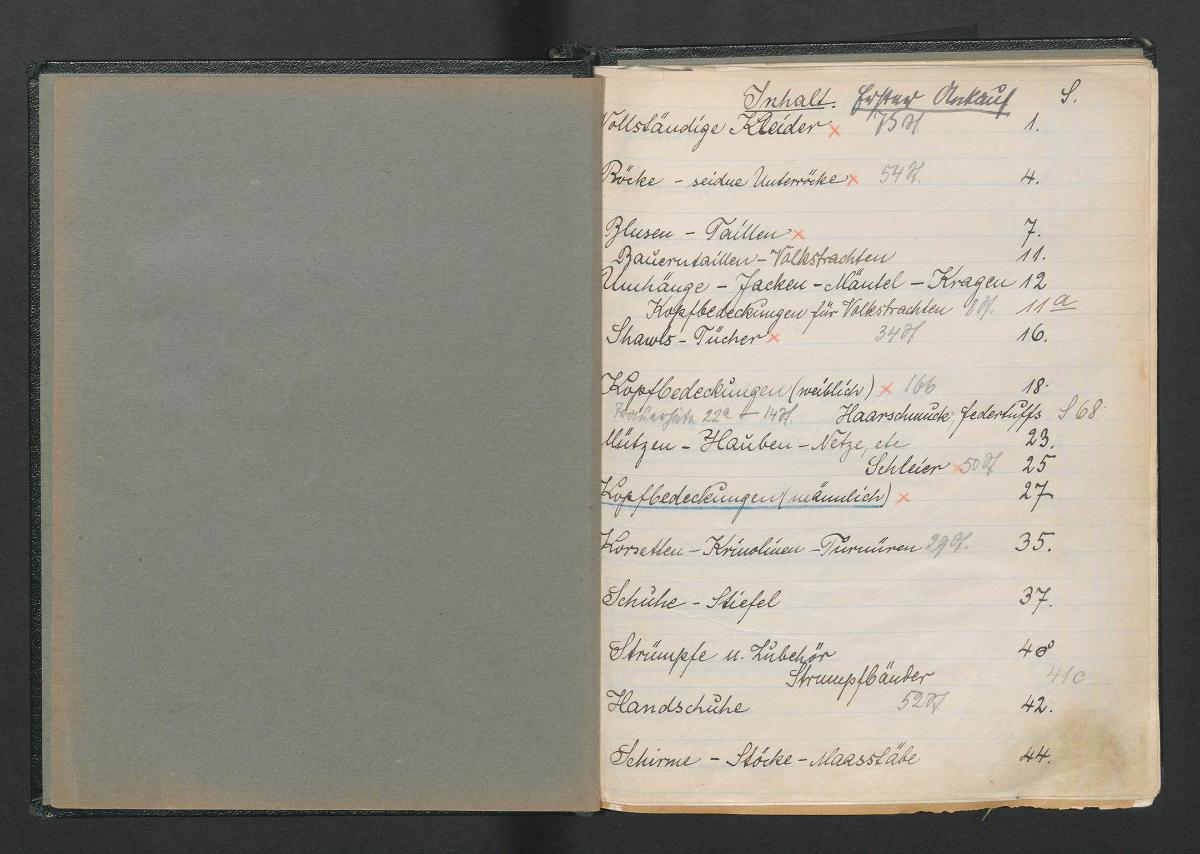 Inhalt. Erster Ankauf S.
Vollständige Kleider × 75 1.
Röcke - seidne Unterröcke × 54 4.
Blusen - Taillen × 7.
Bauerntaillen - Volkstrachten 11.
Umhänge - Jacken - Mäntel - Kragen 12
Kopfbedeckungen für Volkstrachten 8 11a
Shawls - Tücher × 34 16.
Kopfbedeckungen (weiblich) × 166 18.
Trauerhüte 22a - 14 Haarschmuck, Federtuffs S 68
Mützen - Hauben - Netze, etc 23.
Schleier × 50 25
Kopfbedeckungen (männlich) × 27
Korsetten - Krinolinen - Turnüren 29 35.
Schuhe - Stiefel 37.
Strümpfe u. Zubehör 40
Strumpfbänder 41c
Handschuhe 52 42.
Schirme - Stöcke - Maasstäbe 44.